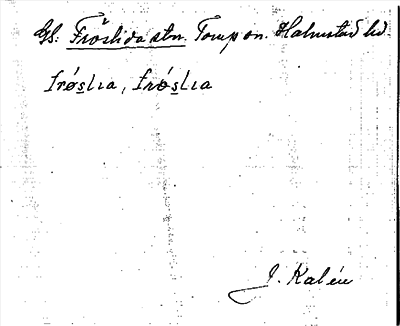 Gs. Fröslida stn. Torup sn. Halmstad hd
frǿslıa, frǿslıa
J. Kalén